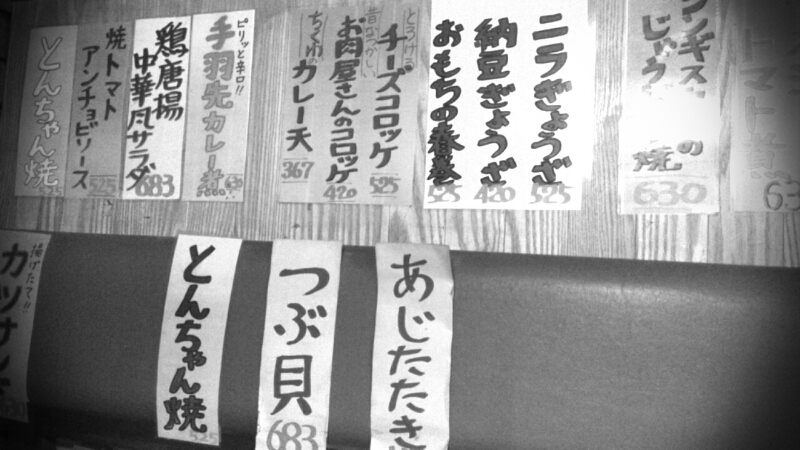 とんちゃん焼
焼トマト
アンチョビソース
525
鶏唐揚
中華風サラダ
683
ピリッと辛口!!
手羽先カレー煮
630
ちくわの
カレー天
367
昔なつかしい
お肉屋さんのコロッケ
420
とろける
チーズコロッケ
525
おもちの春巻
525
納豆ぎょうざ
420
ニラぎょうざ
525
ンギス
じゃが
の
焼
630
トマト
63
揚げたて!!
カツサンド
とんちゃん焼
525
つぶ貝
683
あじたたき